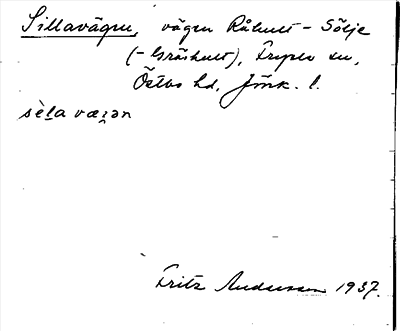 Sillavägen, vägen Råhult - Sölje
(- Gräshult), Fryele sn,
Östbo hd, Jönk. l.
sèḷa væɀən
Fritz Andersson 1937.